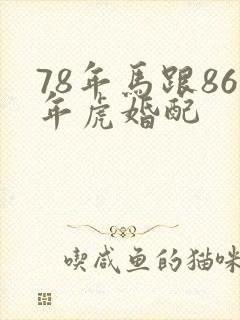 78年馬跟86
年虎婚配
喫咸鱼的猫咪